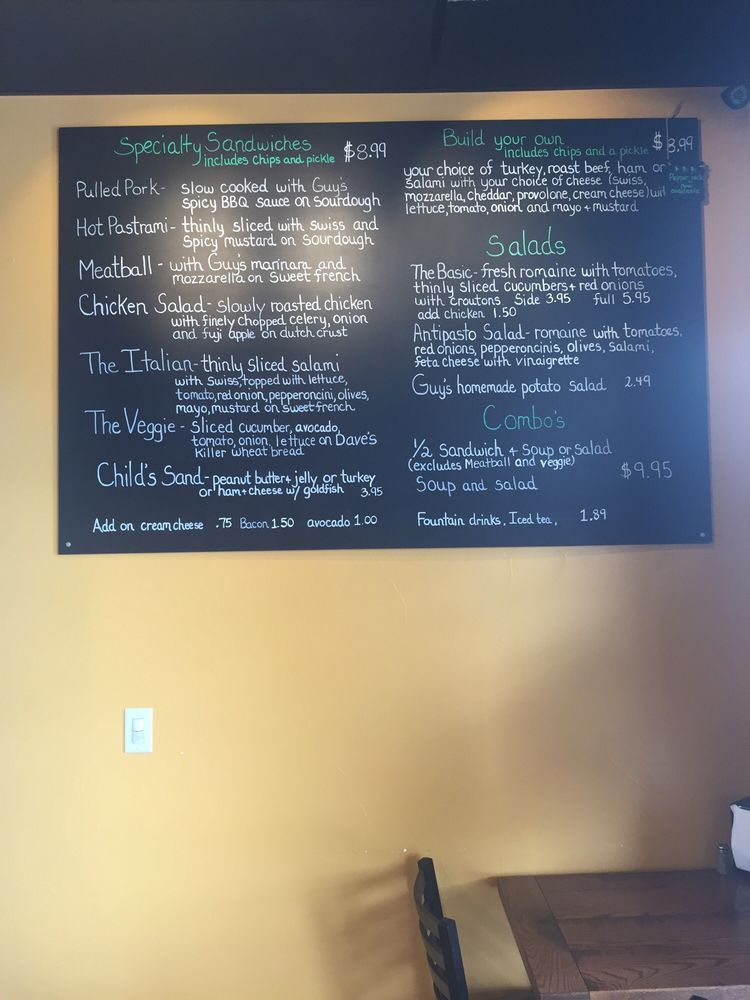 Specialty Sandwiches $8.99
includes chips and pickle
Pulled Pork- slow cooked with Guy's
spicy BBQ sauce on sourdough
Hot Pastrami- thinly sliced with swiss and
spicy mustard on sourdough
Meatball - with Guy's marinara and
mozzarella on sweet french
Chicken Salad- slowly roasted chicken
with finely chopped celery, onion
and fuji apple on dutch crust
The Italian-thinly sliced salami
with swiss, topped with lettuce,
tomato, red onion, pepperoncini, olives,
mayo, mustard on sweet french
The Veggie - sliced cucumber, avocado,
tomato, onion, lettuce on Dave's
killer wheat bread
Child's Sand- peanut butter + jelly or turkey
or ham + cheese w/ goldfish 3.95
Add on cream cheese .75 Bacon 1.50 avocado 1.00
Build your own $ 8.99
includes chips and a pickle
your choice of turkey, roast beef, ham or
salami with your choice of cheese (swiss,
mozzarella, cheddar, provolone, cream cheese)
lettuce, tomato, onion and mayo + mustard
Salads
The Basic- fresh romaine with tomatoes,
thinly sliced cucumbers + red onions
with croutons Side 3.95 full 5.95
add chicken 1.50
Antipasto Salad- romaine with tomatoes,
red onions, pepperoncinis, olives, salami,
feta cheese with vinaigrette
Guy's homemade potato salad 2.49
Combo's
1/2 Sandwich + Soup or Salad
(excludes Meatball and veggie)
$9.95
Soup and salad
Fountain drinks, Iced tea, 1.89